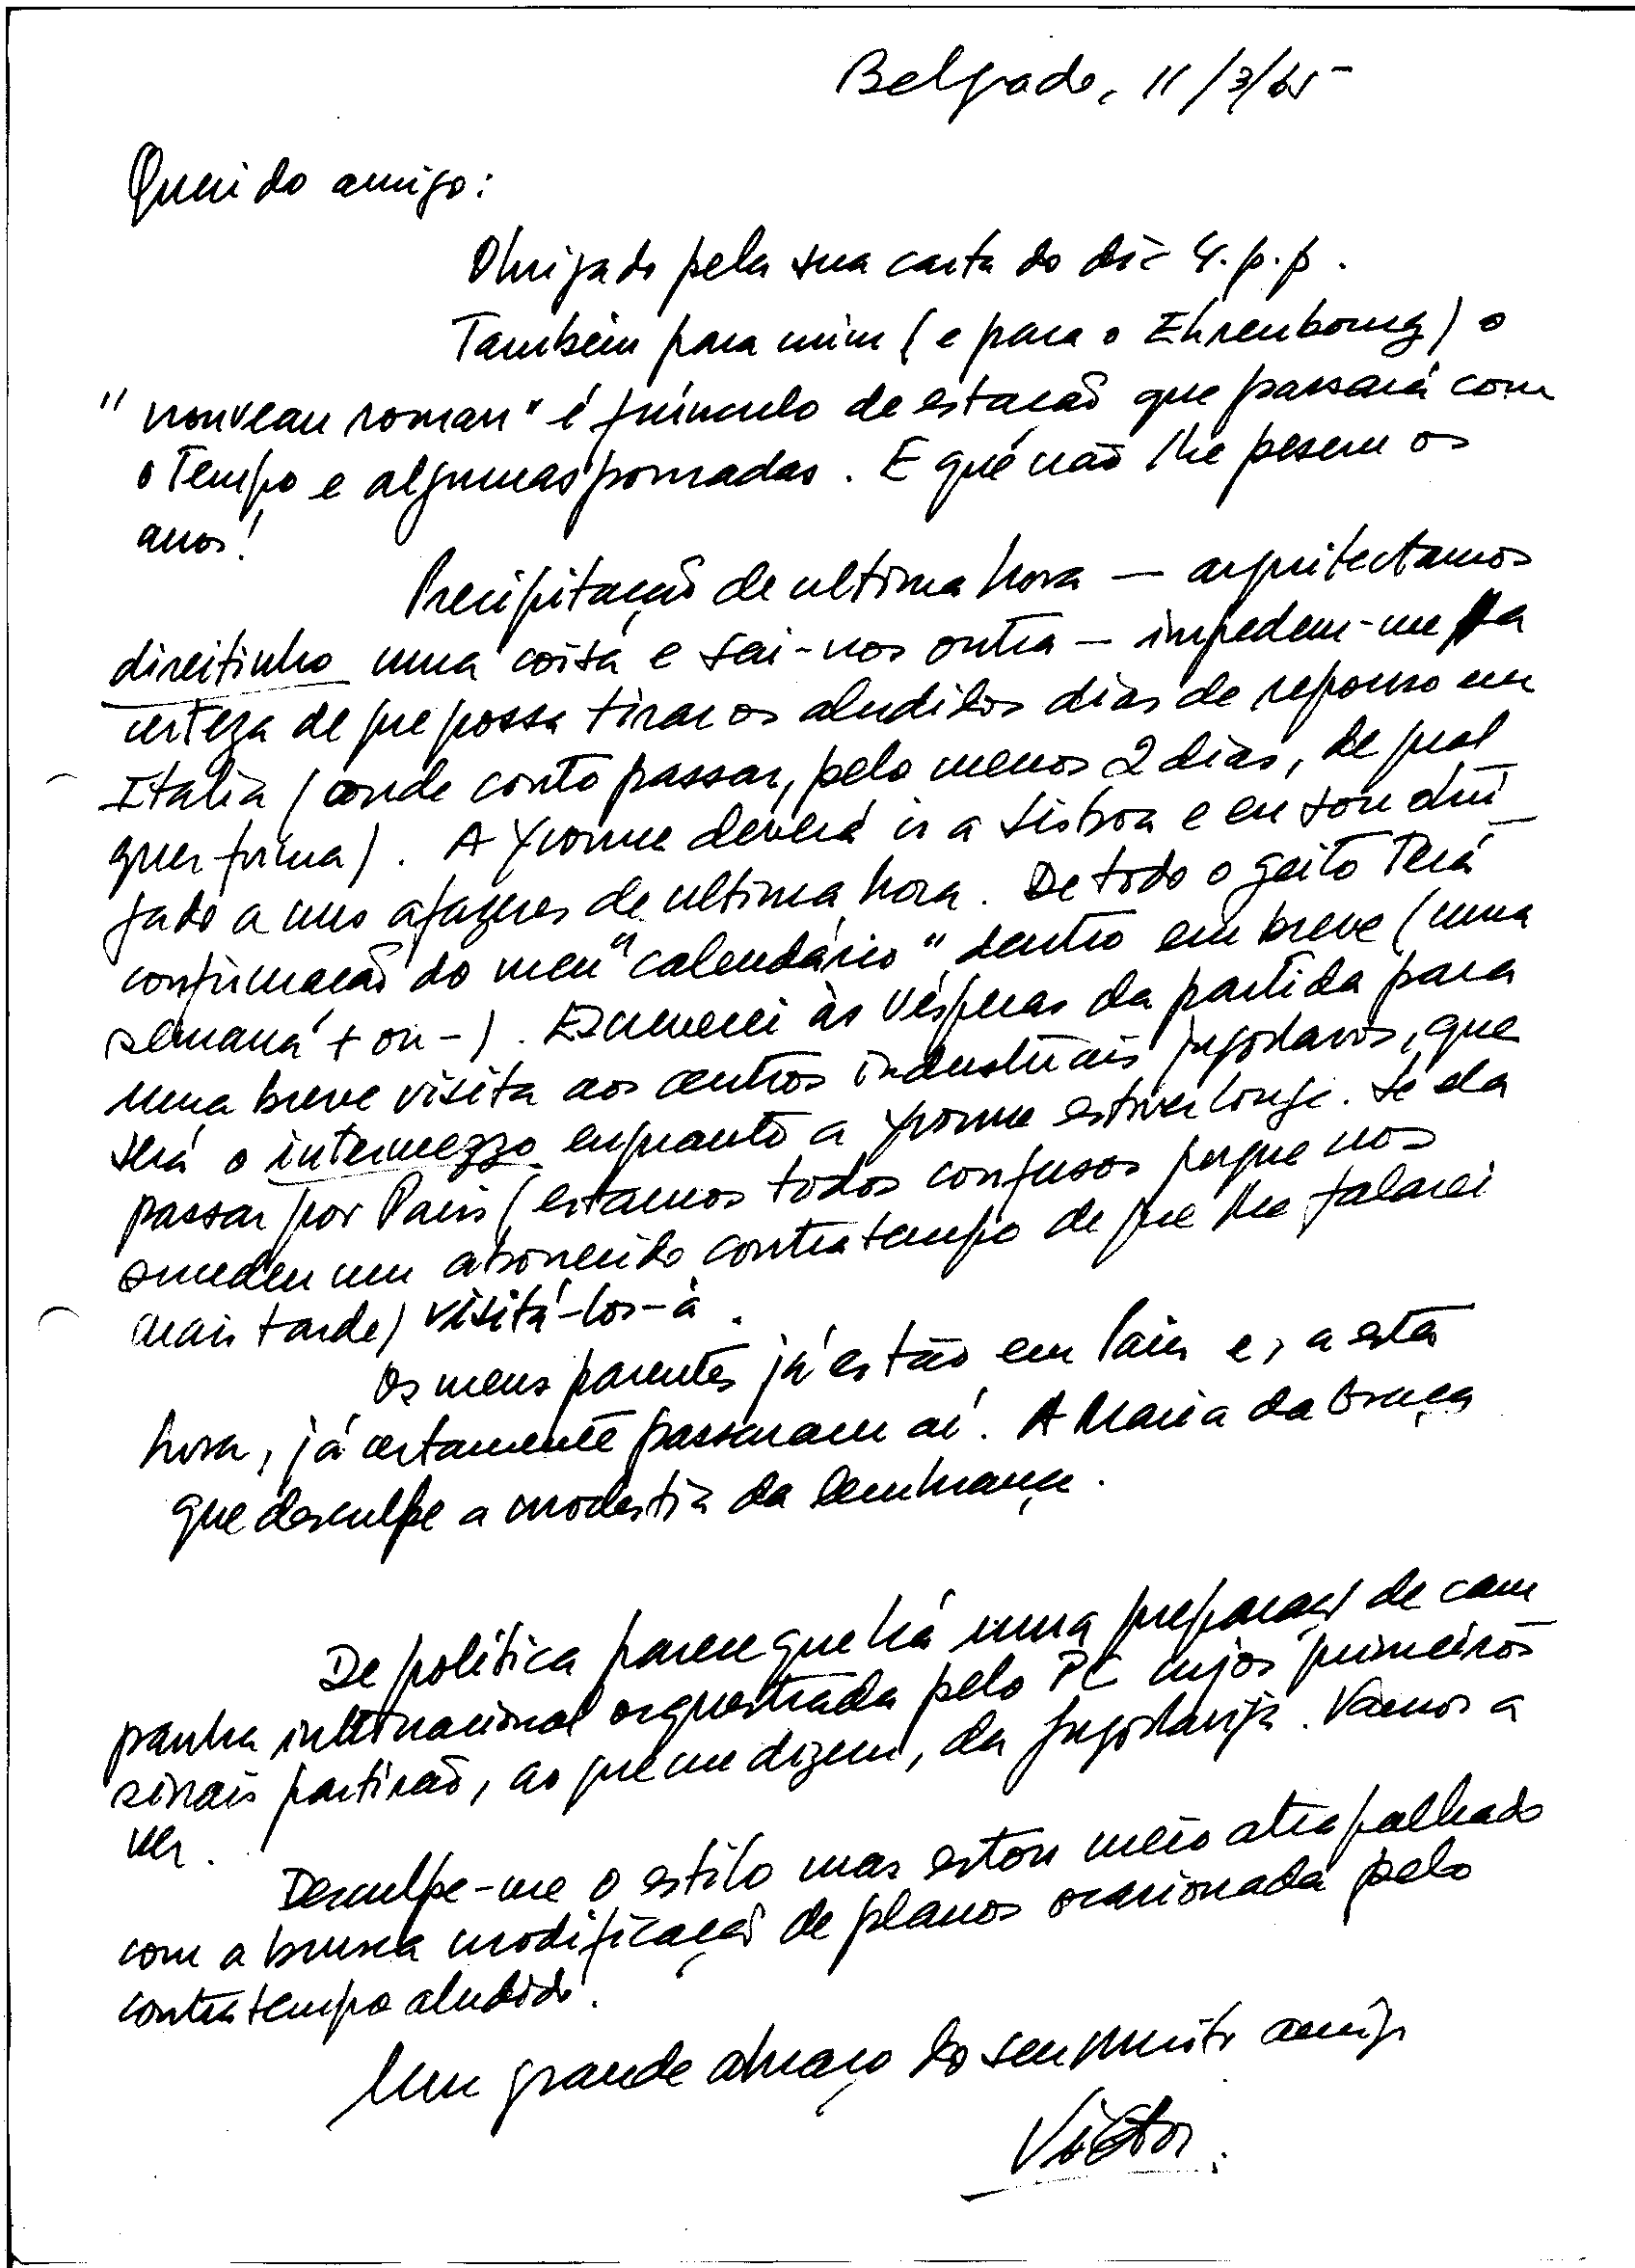 Belgrado, 11/3/65
Querido amigo:
Obrigado pela sua carta do dia 4. p. p.
Também para mim (e para o Ehrenbourg) o
"nouveau roman" é furúnculo de estação que passará com
o tempo e algumas pomadas. E que não lhe pesem os
anos!
Precipitação de ultima hora — arquitectamos
direitinho uma coisa e sai-nos outra — impedem-me a
certeza de que possa tirar os aludidos dias de repouso em
Italia (onde conto passar, pelo menos 2 dias, de qual
quer forma). A Yvonne deverá ir a Lisboa e eu sou obri
gado a uns afazeres de ultima hora. De todo o geito terá
confirmação do meu "calendário" dentro em breve (uma
semana + ou -). Escreverei às vésperas da partida para
uma breve visita aos centros industriais jugoslavos, que
será o intermezzo enquanto a Yvonne estiver longe. Se ela
passar por Paris (estamos todos confusos porque nos
sucedeu um aborrecido contratempo de que lhe falarei
mais tarde) visitá-los-á.
Os meus parentes já estão em Paris e, a esta
hora, já certamente passaram aí. A Maria da Graça
que desculpe a modestia da lembrança.
De política parece que há uma preparação de cam
panha internacional orquestrada pelo PC cujos primeiros
sinais partirão, ao que me dizem, da Jugoslavija. Vamos a
ver.
Desculpe-me o estilo mas estou meio atrapalhado
com a brusca modificação de planos ocasionada pelo
contratempo aludido.
Um grande abraço do seu muito amigo
Victor.